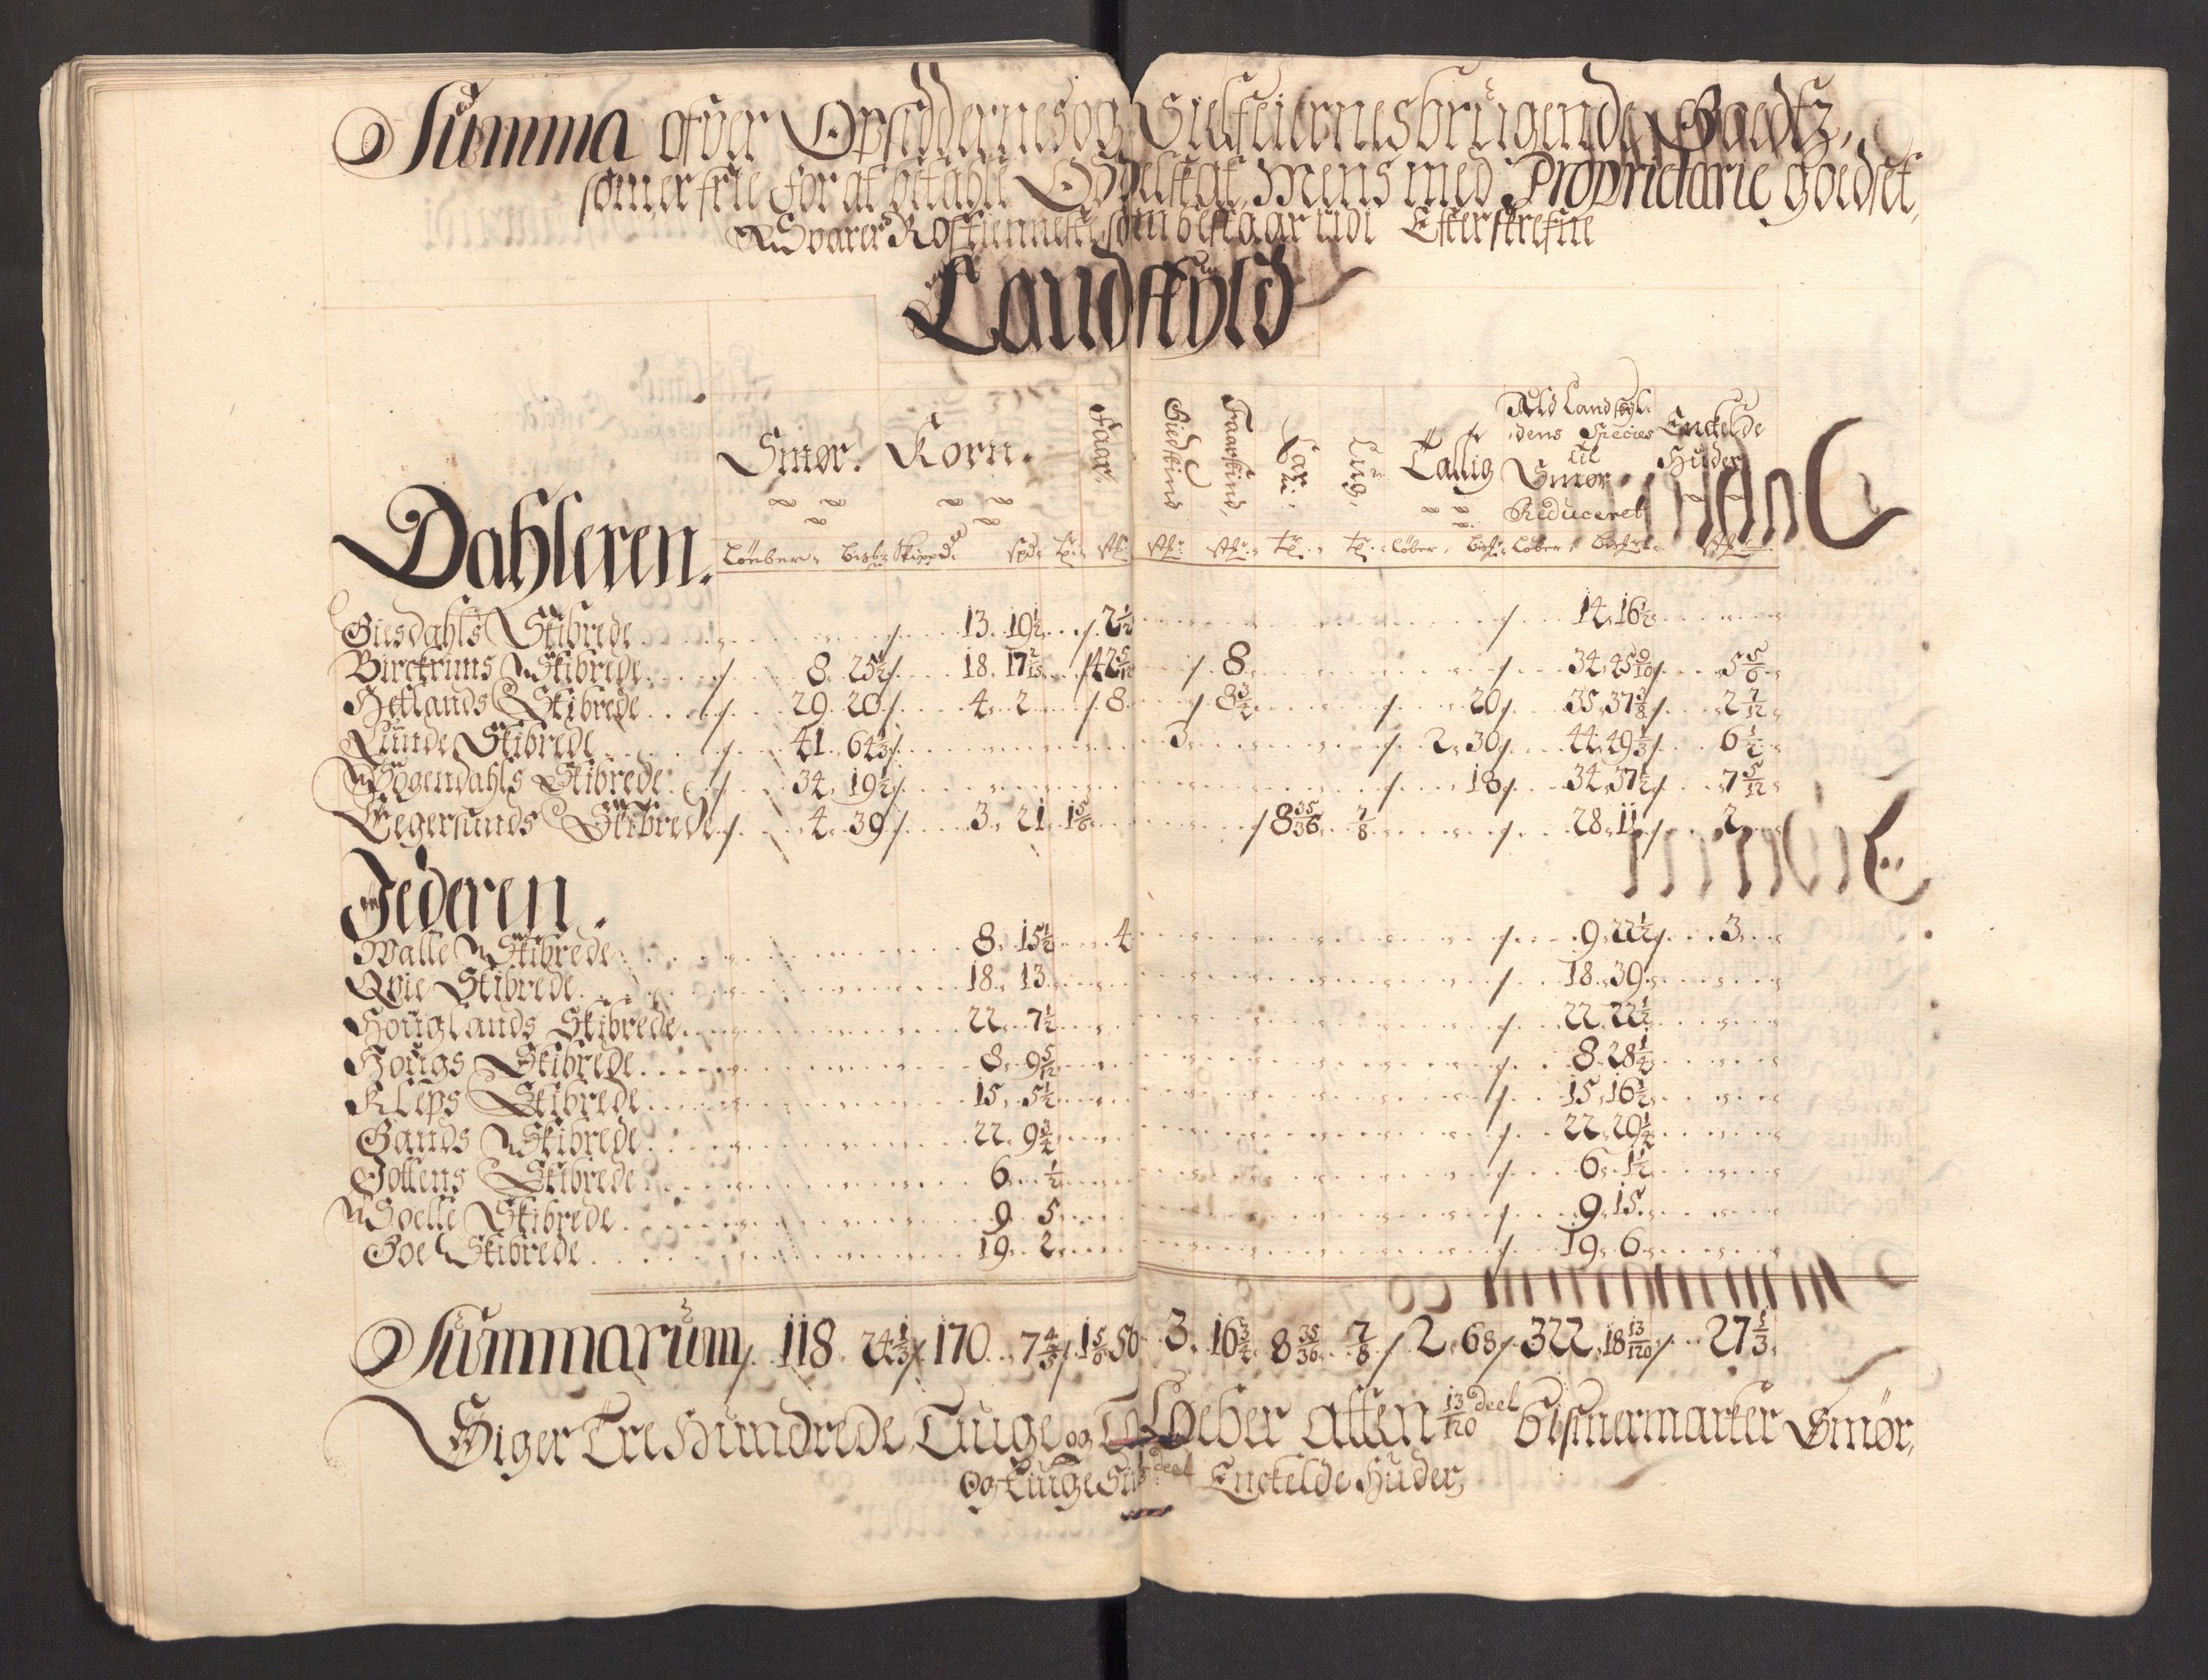 Summa ofver Opsiddernes og Sielfeiernes brugende Goedtz,
som er frie for at betahle Oddelskat, Mens med Proprietarie goedset,
Svarer Rostienneste, som bestaar udi Efterskrefne
Landskyld
Smør. Korn. Faar. Giedskind Faarskind, Tallig Ald Landskyldens Species til Smør Reduceret Enckelde Huder
Dahleren.
Løeber Skippd Løber Løber
Giesdahls Skibrede 13. 10 1/2 2 1/2 14. 16 1/2
Birckrims Skibrede 8. 25 1/2 18. 17 2/15 42 5/12 8 34. 45 9/10 5 5/6
Hetlands Skibrede 29. 20 4. 2 8 8 3/4 20 35. 37 3/8 2 7/12
Lunde Skibrede 41. 64 1/3 3 2. 30 44. 49 1/3 6 1/2
Sogendahls Skibrede 34. 19 1/2 18 34. 37 1/2 7 5/12
Eegersunds Skibrede 4. 39 3. 21. 1 5/6 8 35/36 7/8 28. 11 2
Jederen.
Walle Skibrede 8. 15 1/2 4 9. 22 1/2 3
Qvie Skibrede 18. 13 18. 39
Houglands Skibrede 22. 7 1/2 22. 22 1/2
Hougs Skibrede 8. 9 5/12 8. 28 1/4
Kleps Skibrede 15. 5 1/2 15. 16 1/2
Gands Skibrede 22. 9 3/4 22. 29 1/4
Jottens Skibrede 6. 1/2 6. 1 1/2
Soelle Skibrede 9. 5 9. 15
Goe Skibrede 19. 2 19. 6
Summarum 118. 24 1/3 170. 7 4/5 1 5/6 56 3. 16 3/4 8 35/36 7/8 2. 68 322. 18 13/120 27 1/3
Siger Tre Hundrede Tiuge og To Løeber Atten 13/120 deel bismermarker Smør,
Og Tiuge Siu deel Enckelde Huder,